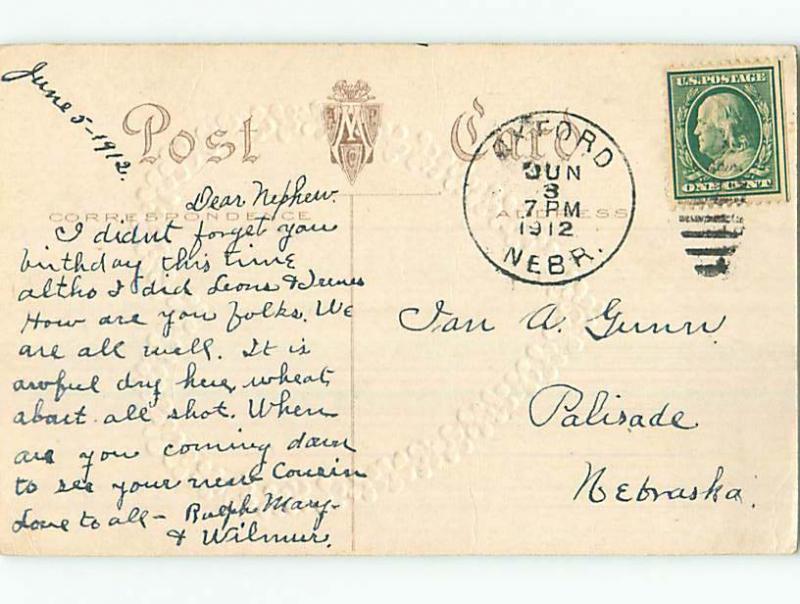 June 5-1912.
Post Card
CORRESPONDENCE
ADDRESS
U.S. POSTAGE
ONE CENT
OXFORD
JUN
8
7 PM
1912
NEBR.
Dear Nephew.
I didnt forget you
birthday this time
altho I did Leons & Irenes
How are you folks. We
are all well. It is
awful dry here, wheat
about all shot. When
are you coming down
to see your new Cousin
Love to all - Ralph Mary
& Wilmur.
Ian A. Gunn
Palisade
Nebraska.